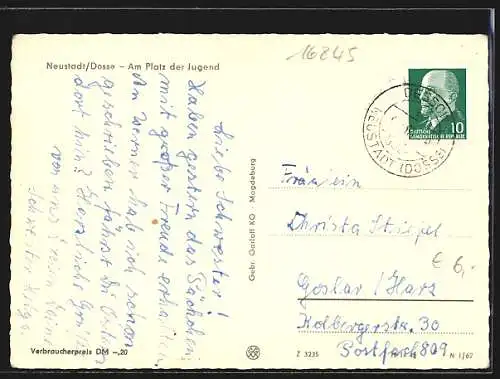 16845
Neustadt/Dosse – Am Platz der Jugend
Liebe Schwester!
Haben gestern das Päckchen
mit großer Freude erhalten
An Werner hab ich schon
geschrieben fährst Du Ostern
dort hin? Herzliche Grüße
von uns
Gebr. Garloff KG · Magdeburg
NEUSTADT (DOSSE)
DEUTSCHE
DEMOKRATISCHE REPUBLIK
10
Fräulein
Christa
€ 6,-
Goslar/Harz
Kolbergerstr. 30
Postfach 809
Verbraucherpreis DM –,20
Z 3235
N 1/62